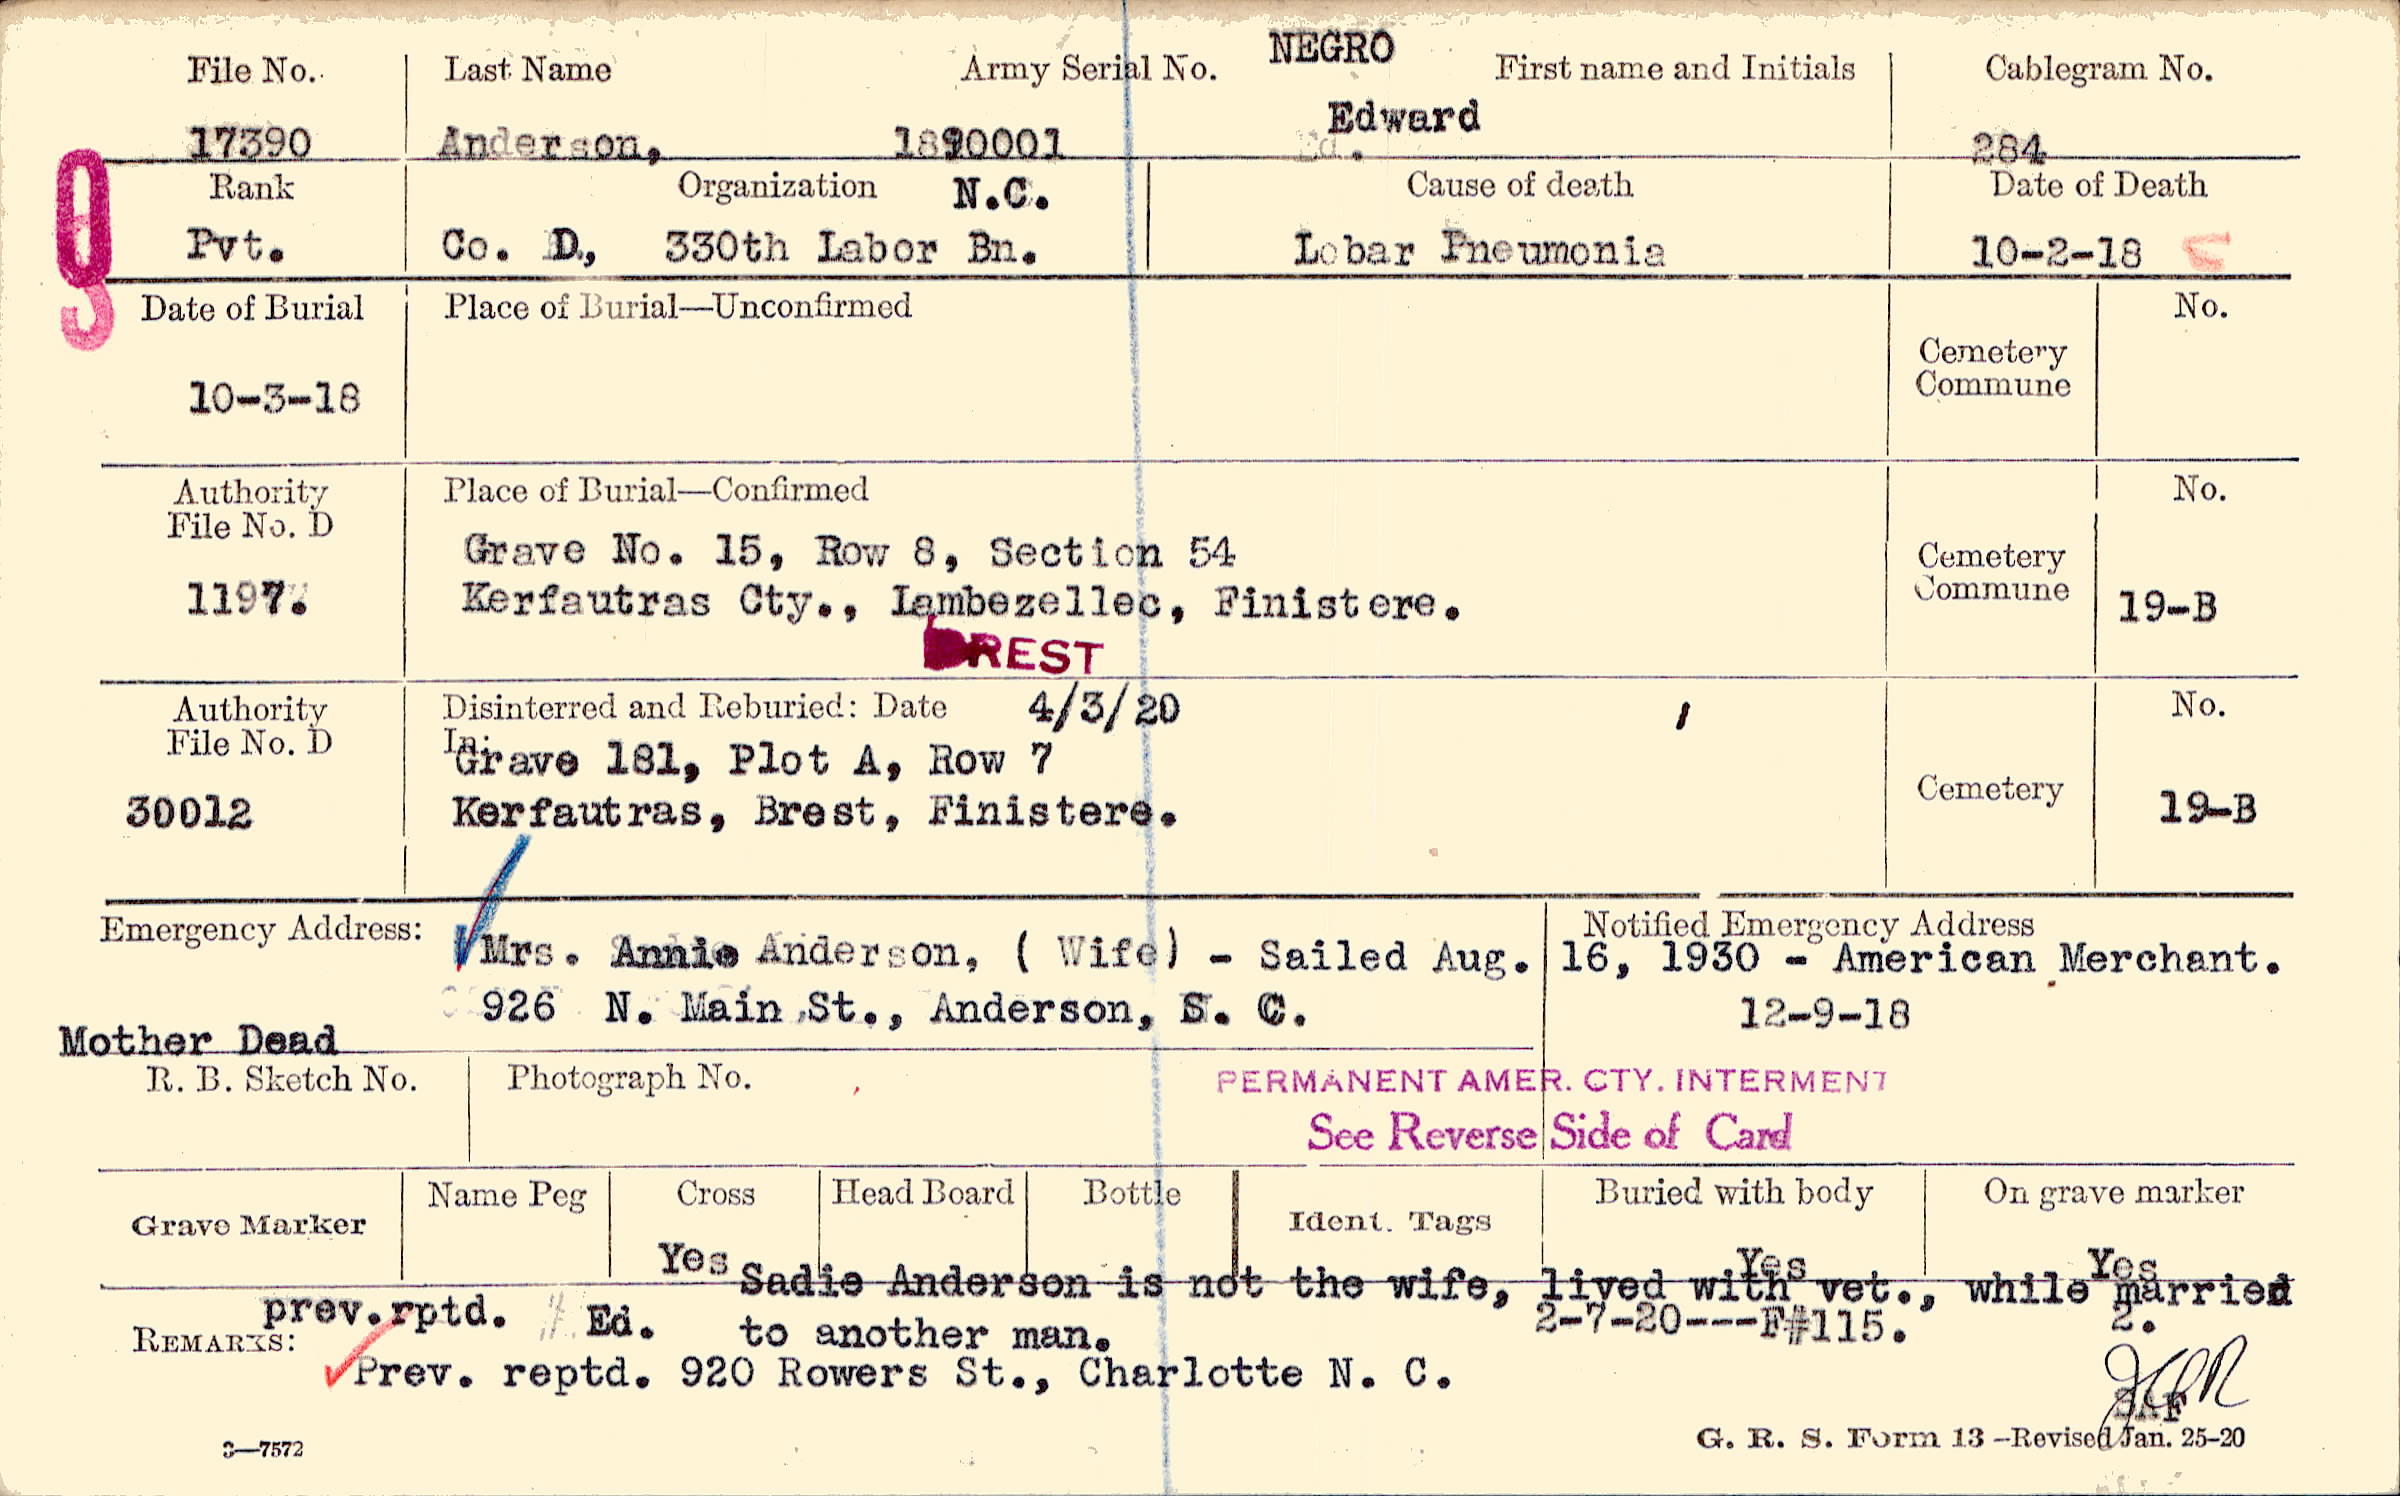 NEGRO
File No. Last Name Army Serial No. First name and Initials Cablegram No.
Edward
17390 Anderson, Ed. 284
Rank Organization N.C. Cause of death Date of Death
Pvt. Co. D, 330th Labor Bn. Lobar Pneumonia 10-2-18
9
Date of Burial Place of Burial—Unconfirmed No.
Cemetery
Commune
10-3-18
Authority Place of Burial—Confirmed No.
File No. D
Grave No. 15, Row 8, Section 54 Cemetery
1197. Kerfautras Cty., Lambezellec, Finistere. Commune 19-B
BREST
Authority Disinterred and Reburied: Date 4/3/20 No.
File No. D In:
Grave 181, Plot A, Row 7
Cemetery
30012 Kerfautras, Brest, Finistere. 19-B
Emergency Address: Notified Emergency Address
Mrs. Annie Anderson, ( Wife) - Sailed Aug. 16, 1930 - American Merchant.
926 N. Main St., Anderson, S. C. 12-9-18
Mother Dead
R. B. Sketch No. Photograph No. PERMANENT AMER. CTY. INTERMENT
See Reverse Side of Card
Name Peg Cross Head Board Bottle Buried with body On grave marker
Grave Marker Ident. Tags
Yes Yes Yes
Sadie Anderson is not the wife, lived with vet., while married
prev.rptd. Ed. to another man. 2-7-20---F#115. 2.
REMARKS:
Prev. reptd. 920 Rowers St., Charlotte N. C.
SAF
3—7572 G. R. S. Form 13 —Revised Jan. 25-20